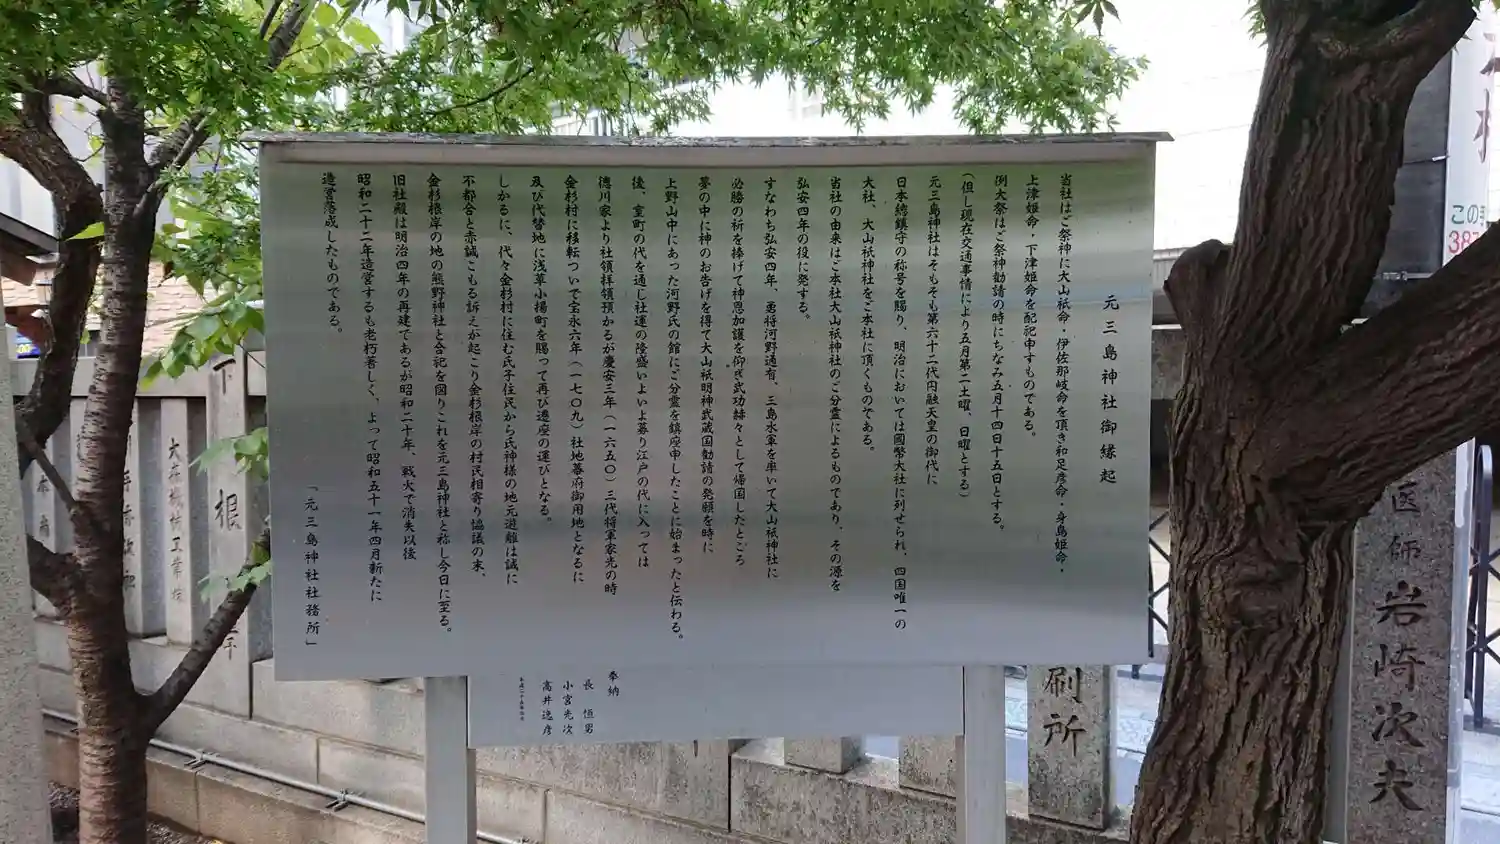 元三島神社御縁起
当社はご祭神に大山祇命・伊佐那岐命を頂き和足彦命・身島姫命・
上津姫命・下津姫命を配祀申すものである。
例大祭はご祭神勧請の時にちなみ五月十四日十五日とする。
(但し現在交通事情により五月第二土曜、日曜とする)
元三島神社はそもそも第六十二代円融天皇の御代に
日本總鎮守の称号を賜り、明治においては國幣大社に列せられ、四国唯一の
大社、大山祇神社をご本社に頂くものである。
当社の由来はご本社大山祇神社のご分霊によるものであり、その源を
弘安四年の役に発する。
すなわち弘安四年、勇将河野通有、三島水軍を率いて大山祇神社に
必勝の祈を捧げて神恩加護を仰ぎ武功赫々として帰国したところ
夢の中に神のお告げを得て大山祇明神武蔵国勧請の発願を時に
上野山中にあった河野氏の館にご分霊を鎮座申したことに始まったと伝わる。
後、室町の代を通し社運の隆盛いよいよ募り江戸の代に入っては
徳川家より社領拝領預かるが慶安三年(一六五〇)三代将軍家光の時
金杉村に移転ついで宝永六年(一七〇九)社地幕府御用地となるに
及び代替地に浅草小揚町を賜って再び遷座の運びとなる。
しかるに、代々金杉村に住む氏子住民から氏神様の地元遊離は誠に
不都合と赤誠こもる訴えが起こり金杉根岸の村民相寄り協議の末、
金杉根岸の地の熊野神社と合祀を図りこれを元三島神社と称し今日に至る。
旧社殿は明治四年の再建であるが昭和二十年、戦火で消失以後
昭和二十二年造営するも老朽著しく、よって昭和五十一年四月新たに
造営落成したものである。
「元三島神社社務所」
奉納
長 恒男
小宮光次
高井逸彦
医師 岩崎次夫
刷所
下根
この
387